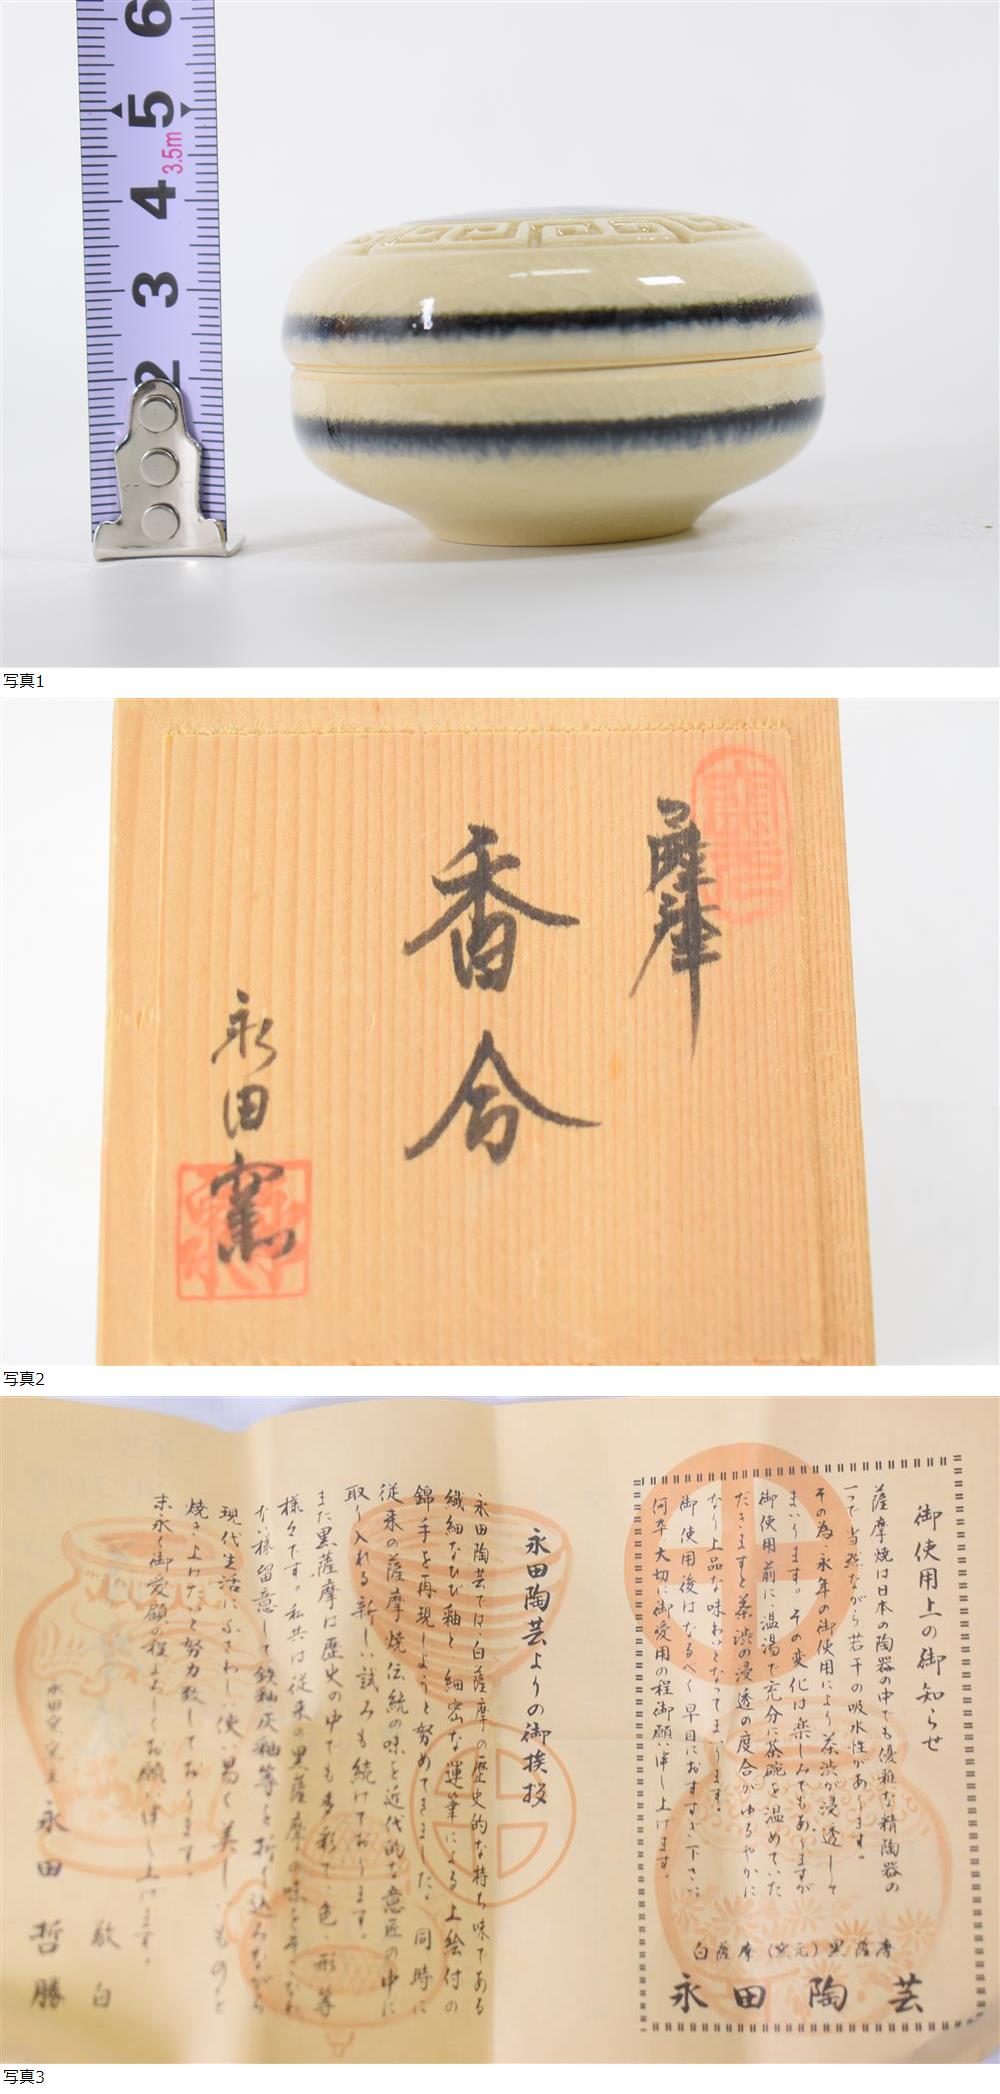 6
5
3.5m
4
3
2
写真1
薩摩
香合
永田窯
写真2
御使用上の御知らせ
薩摩焼は日本の陶器の中でも優雅な精陶器の
一つで当然ながら若干の吸水性があります。
その為、永年の御使用により茶渋が浸透して
まいります。その変化は楽しみでもありますが
御使用前に、温湯で充分に茶碗を温めていた
だきますと茶渋の浸透の度合がゆるやかに
なり上品な味わいとなってまいります。
御使用後はなるべく早目におすすぎ下さい。
何卒大切に御愛用の程御願い申し上げます。
白薩摩(窯元)黒薩摩
永田陶芸
永田陶芸よりの御挨拶
永田陶芸では、白薩摩の歴史的な持ち味である
繊細なひび釉と、細密な運筆による上絵付の
錦手を再現しようと努めてきました。同時に
従来の薩摩焼伝統の味を近代的な意匠の中に
取り入れる新しい試みも続けております。
また黒薩摩は歴史の中でも多彩で、色、形等
様々です。私共は従来の黒薩摩の味をそこなわ
ない様留意して鉄釉灰釉等を折り込みながら
現代生活にふさわしい使い易く美しいものを
焼き上げたいと努力致しております。
末永く御愛顧の程よろしくお願い申し上げます。
敬白
永田哲勝
写真3